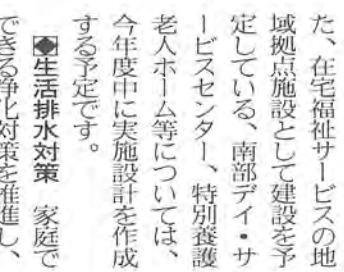 た、在宅福祉サービスの地
域拠点施設として建設を予
定している、南部デイ・サ
ービスセンター、特別養護
老人ホーム等については、
今年度中に実施設計を作成
する予定です。
◆生活排水対策　家庭で
できる浄化対策を推進し、